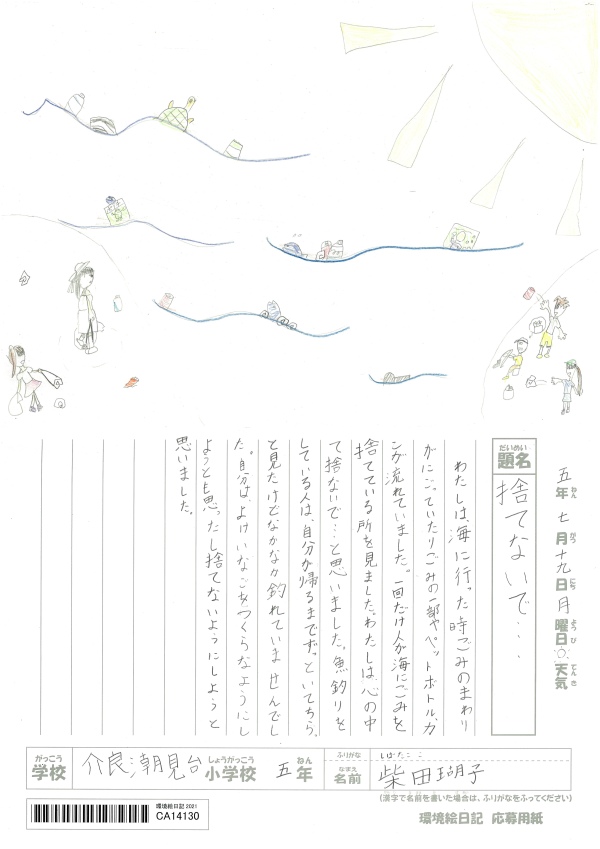 五年 七月十九日 月曜日 天気
ねん がつ にち ようび てんき
だいめい
題名
捨てないで・・・
わたしは、海に行った時ごみのまわり
がにごっていたりごみの一部やペットボトル、カ
ンが流れていました。一回だけ人が海にごみを
捨てている所を見ました。わたしは、心の中
で捨ないで…と思いました。魚釣りを
している人は、自分が帰るまでずっといてちらっ
と見たけどなかなか釣れていませんでし
た。自分は、よけいなごみをつくらなようにし
ようとも思ったし捨てないようにしようと
思いました。
がっこう
学校
介良潮見台
しょうがっこう
小学校
五
ねん
年
ふりがな
しばたここ
なまえ
名前
柴田瑚子
(漢字で名前を書いた場合は、ふりがなをふってください)
環境絵日記2021
CA14130
環境絵日記 応募用紙